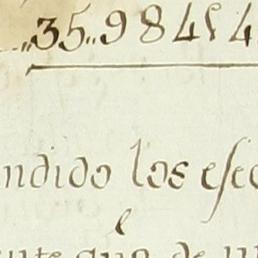 35..98454
ndido los esc
e
nte que de